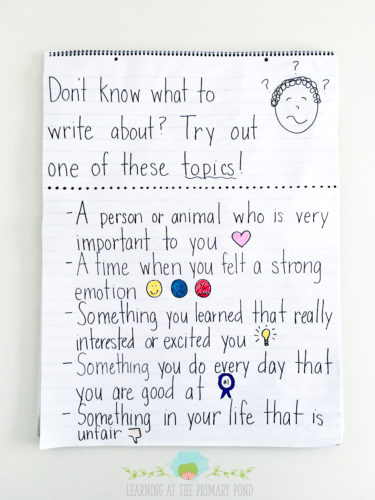 Don't know what to
write about? Try out
one of these topics!
? ? ?
- A person or animal who is very
important to you
- A time when you felt a strong
emotion
- Something you learned that really
interested or excited you
- Something you do every day that
you are good at #1
- Something in your life that is
unfair
LEARNING AT THE PRIMARY POND